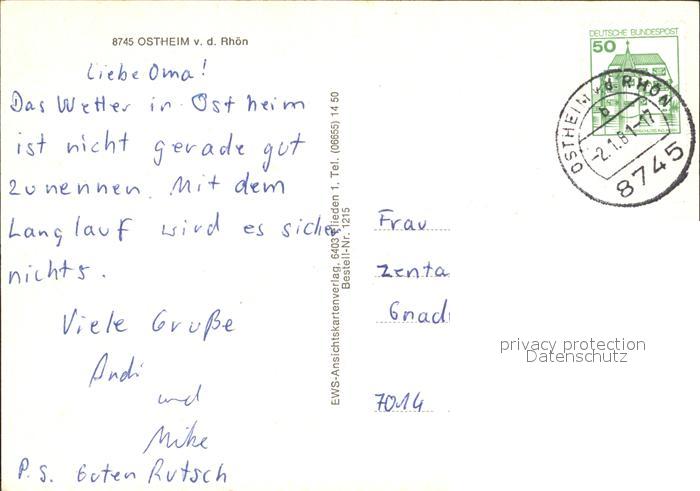 8745 OSTHEIM v. d. Rhön
Liebe Oma!
Das Wetter in Ostheim
ist nicht gerade gut
zu nennen. Mit dem
Langlauf wird es sicher
nichts.
Viele Gruße
Andi
und
Mike
P.S. Guten Rutsch
EWS-Ansichtskartenverlag, 6403 Flieden 1, Tel. (06655) 14 50
Bestell-Nr. 1215
DEUTSCHE BUNDESPOST
50
OSTHEIM v. d. RHÖN
B
-2.1.81-17
8745
Frau
Zenta
Gnad
7014
privacy protection
Datenschutz